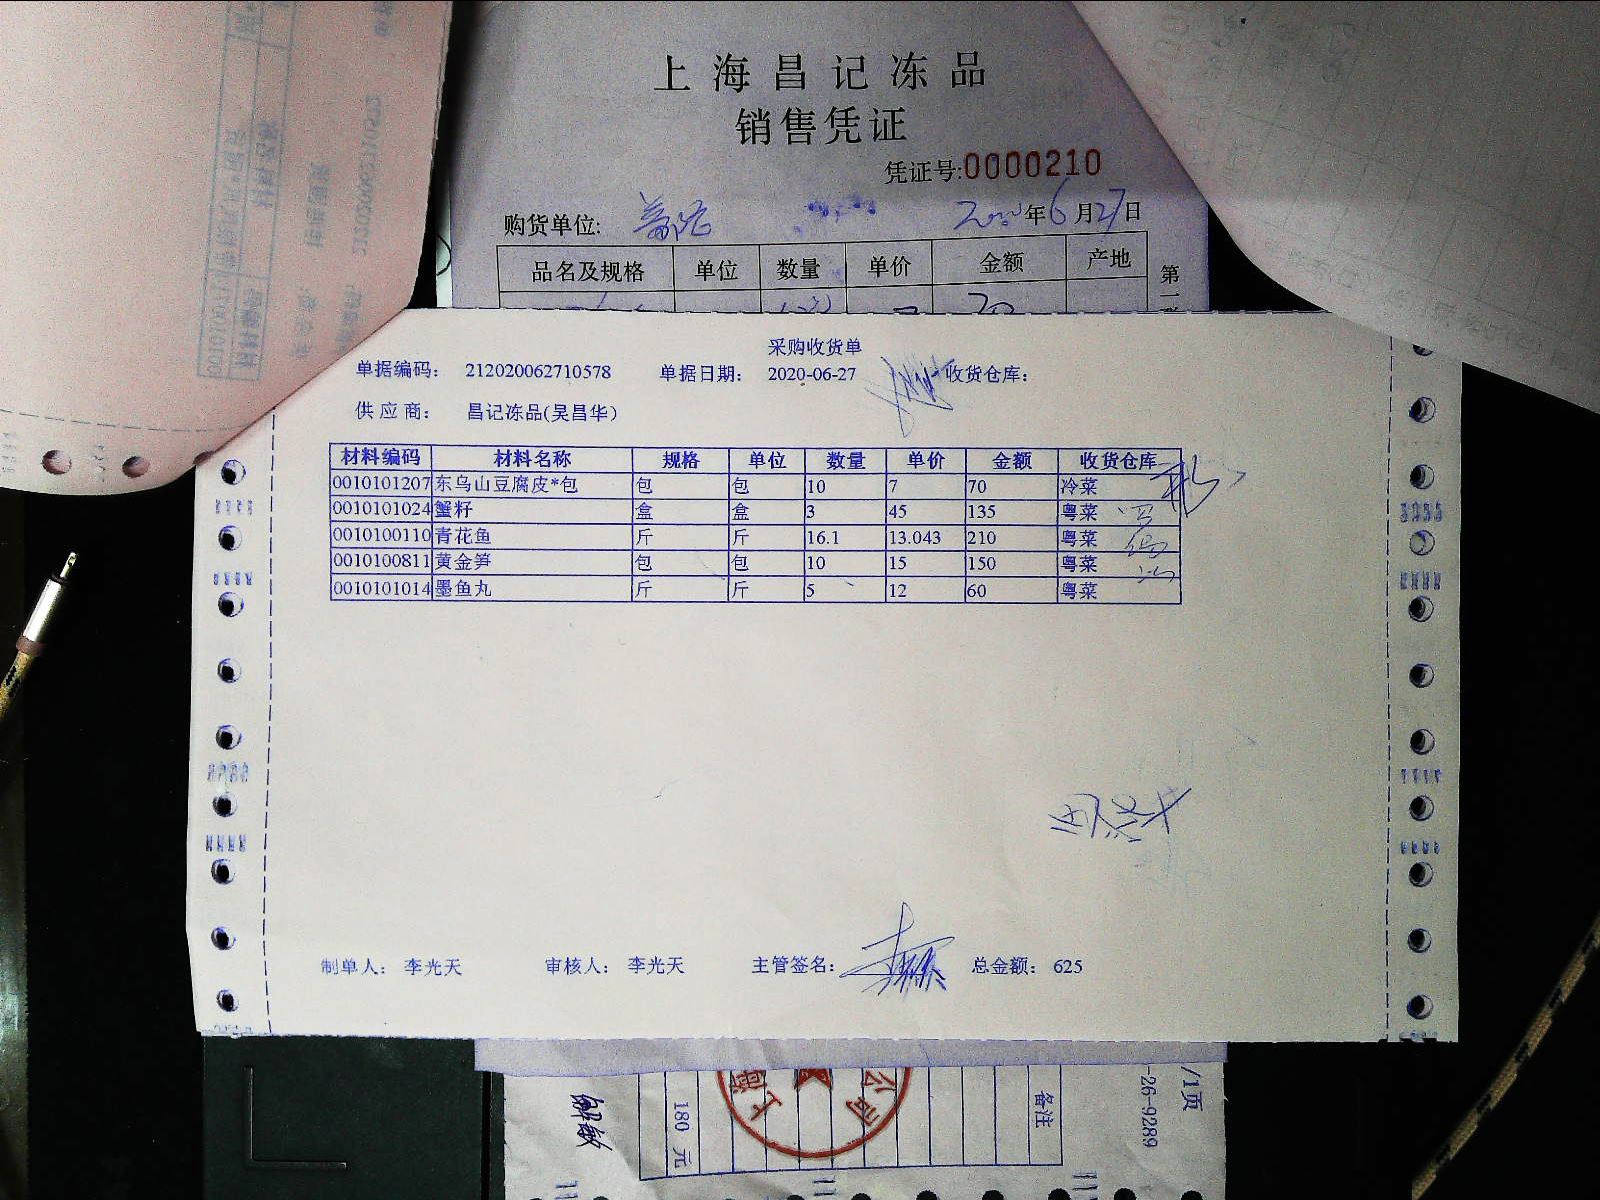 上海昌记冻品
销售凭证
凭证号:0000210
购货单位: 年6月27日
品名及规格 单位 数量 单价 金额 产地
第一
采购收货单
单据编码: 212020062710578 单据日期: 2020-06-27 收货仓库:
供应商: 昌记冻品(吴昌华)
材料编码 材料名称 规格 单位 数量 单价 金额 收货仓库
0010101207 东乌山豆腐皮*包 包 包 10 7 70 冷菜
0010101024 蟹籽 盒 盒 3 45 135 粤菜
0010100110 青花鱼 斤 斤 16.1 13.043 210 粤菜
0010100811 黄金笋 包 包 10 15 150 粤菜
0010101014 墨鱼丸 斤 斤 5 12 60 粤菜
制单人: 李光天 审核人: 李光天 主管签名: 总金额: 625
180 元
上海
公司
备注
-26-9289
/1页